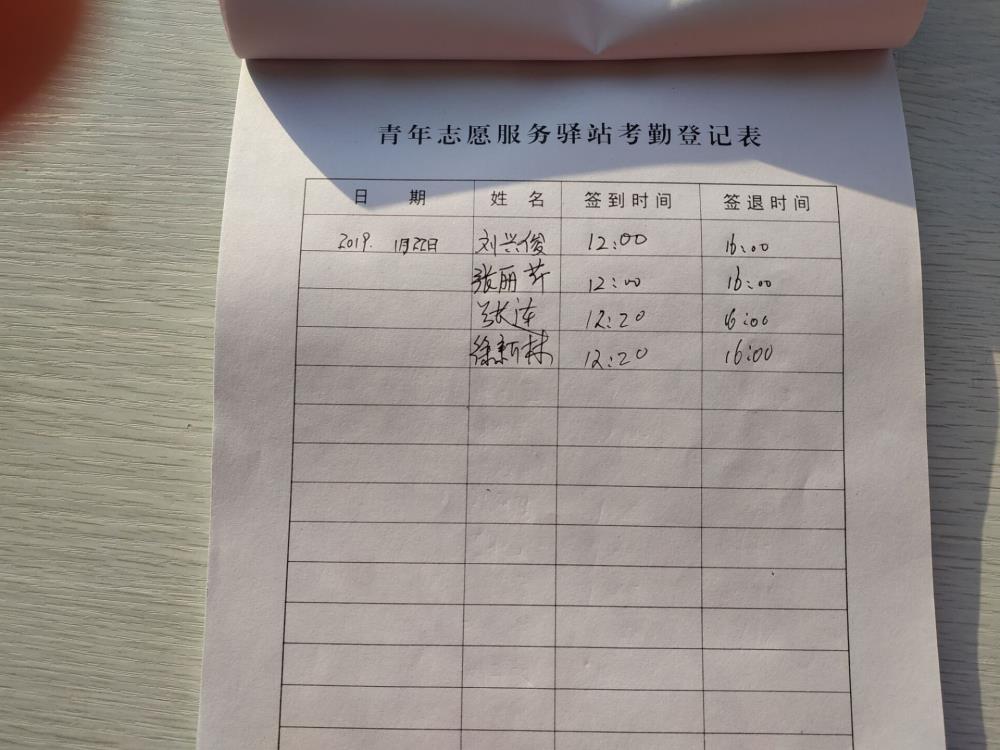 青年志愿服务驿站考勤登记表
日 期 姓 名 签到时间 签退时间
2019. 1月22日 刘兴俊 12:00 16:00
张丽芹 12:00 16:00
张涛 12:20 16:00
徐新林 12:20 16:00